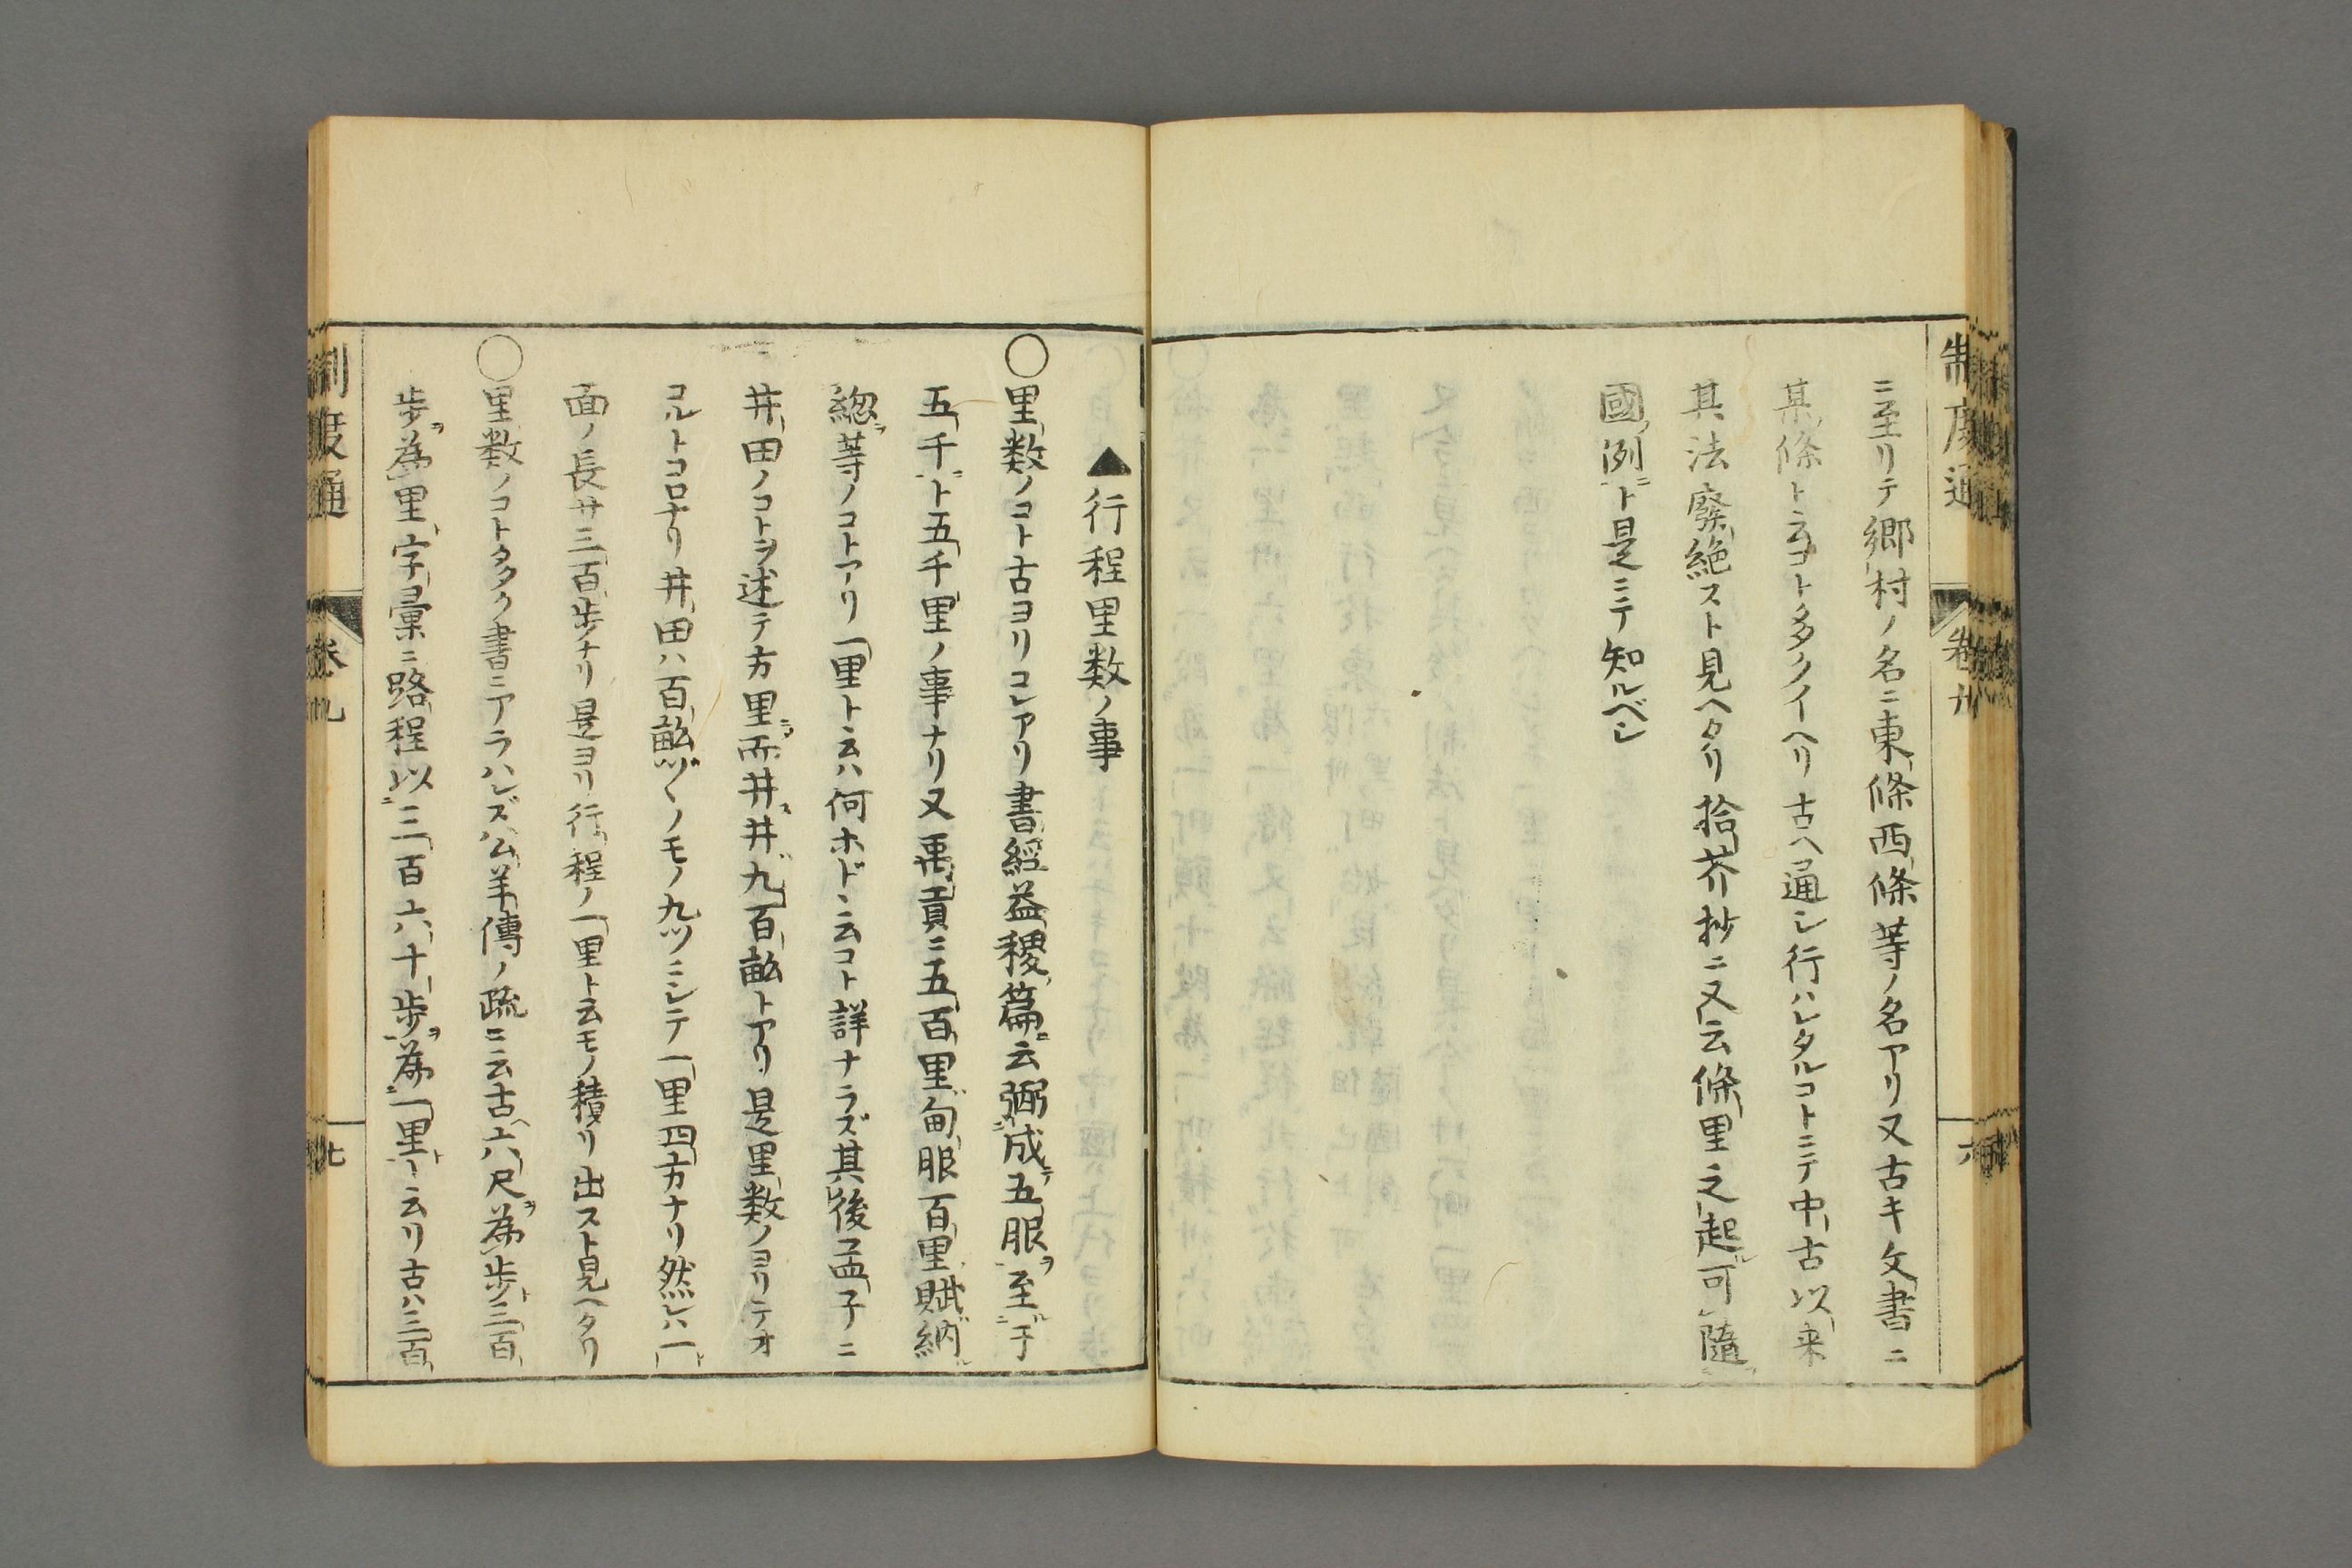 制度通
卷九
六
ニ至リテ郷村ノ名ニ東條西條等ノ名アリ又古キ文書ニ
某條ト云コト多クイヘリ古ヘ通シ行ハレタルコトニテ中古以来
其法廢絶スト見ヘタリ拾芥抄ニ又云條里之起可隨
國例ト是ニテ知ルベシ
▲行程里数ノ事
○里数ノコト古ヨリコレアリ書經益稷篇ニ云弼成五服ヲ至于
五千ニト五千里ノ事ナリ又禹貢ニ五百里甸服百里賦納
緫ヲ等ノコトアリ一里ト云ハ何ホドヽ云コト詳ナラズ其後孟子ニ
井田ノコトヲ述テ方里ニ而井ス井九百畝トアリ是里数ノヨリテオ
コルトコロナリ井田ハ百畝ヅヽノモノ九ツニシテ一里四方ナリ然レハ一
面ノ長サ三百歩ナリ是ヨリ行程ノ一里ト云モノ積リ出スト見ヘタリ
○里数ノコト多ク書ニアラハレズ公羊傳ノ疏ニ云古ヘ六尺ヲ為歩ト三百
歩ヲ為里ト字彙ニ路程以三百六十歩ヲ為一里トヽ云リ古ハ三百
制度通
卷九
七